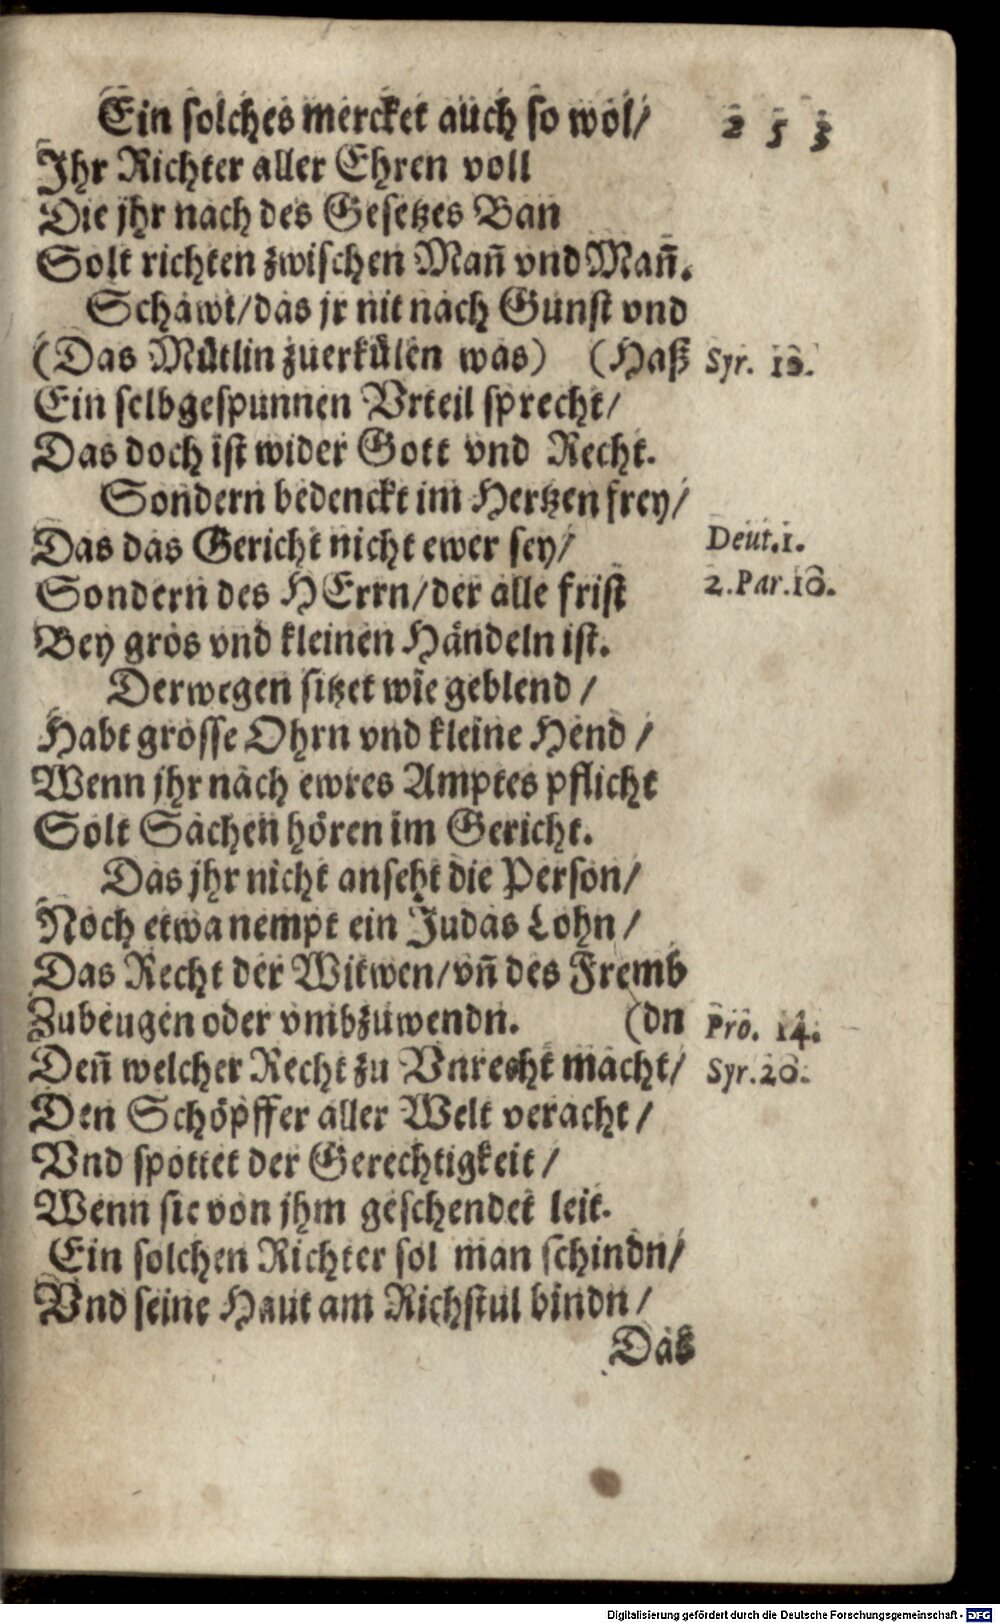 Ein solches mercket auch so wol/ 253
Ihr Richter aller Ehren voll
Die jhr nach des Gesetzes Ban
Solt richten zwischen Mañ vnd Mañ.
Schawt/das jr nit nach Gunst vnd
(Das Mütlin zuerkülen was) (Haß Syr. 10.
Ein selbgespunnen Vrteil sprecht/
Das doch ist wider Gott vnd Recht.
Sondern bedenckt im Hertzen frey/
Das das Gericht nicht ewer sey/ Deut.1.
Sondern des HErrn/der alle frist 2.Par.18.
Bey gros vnd kleinen Händeln ist.
Derwegen sitzet wie geblend/
Habt grosse Ohrn vnd kleine Hend/
Wenn jhr nach ewres Amptes pflicht
Solt Sachen hören im Gericht.
Das jhr nicht anseht die Person/
Noch etwa nempt ein Judas Lohn/
Das Recht der Witwen/vñ des Fremb
Zubeugen oder vmbzuwendn. (dn Pro. 14.
Deñ welcher Recht zu Vnrecht macht/ Syr.20.
Den Schöpffer aller Welt veracht/
Vnd spottet der Gerechtigkeit/
Wenn sie von jhm geschendet leit.
Ein solchen Richter sol man schindn/
Vnd seine Haut am Richstul bindn/
Das
Digitalisierung gefördert durch die Deutsche Forschungsgemeinschaft - DFG